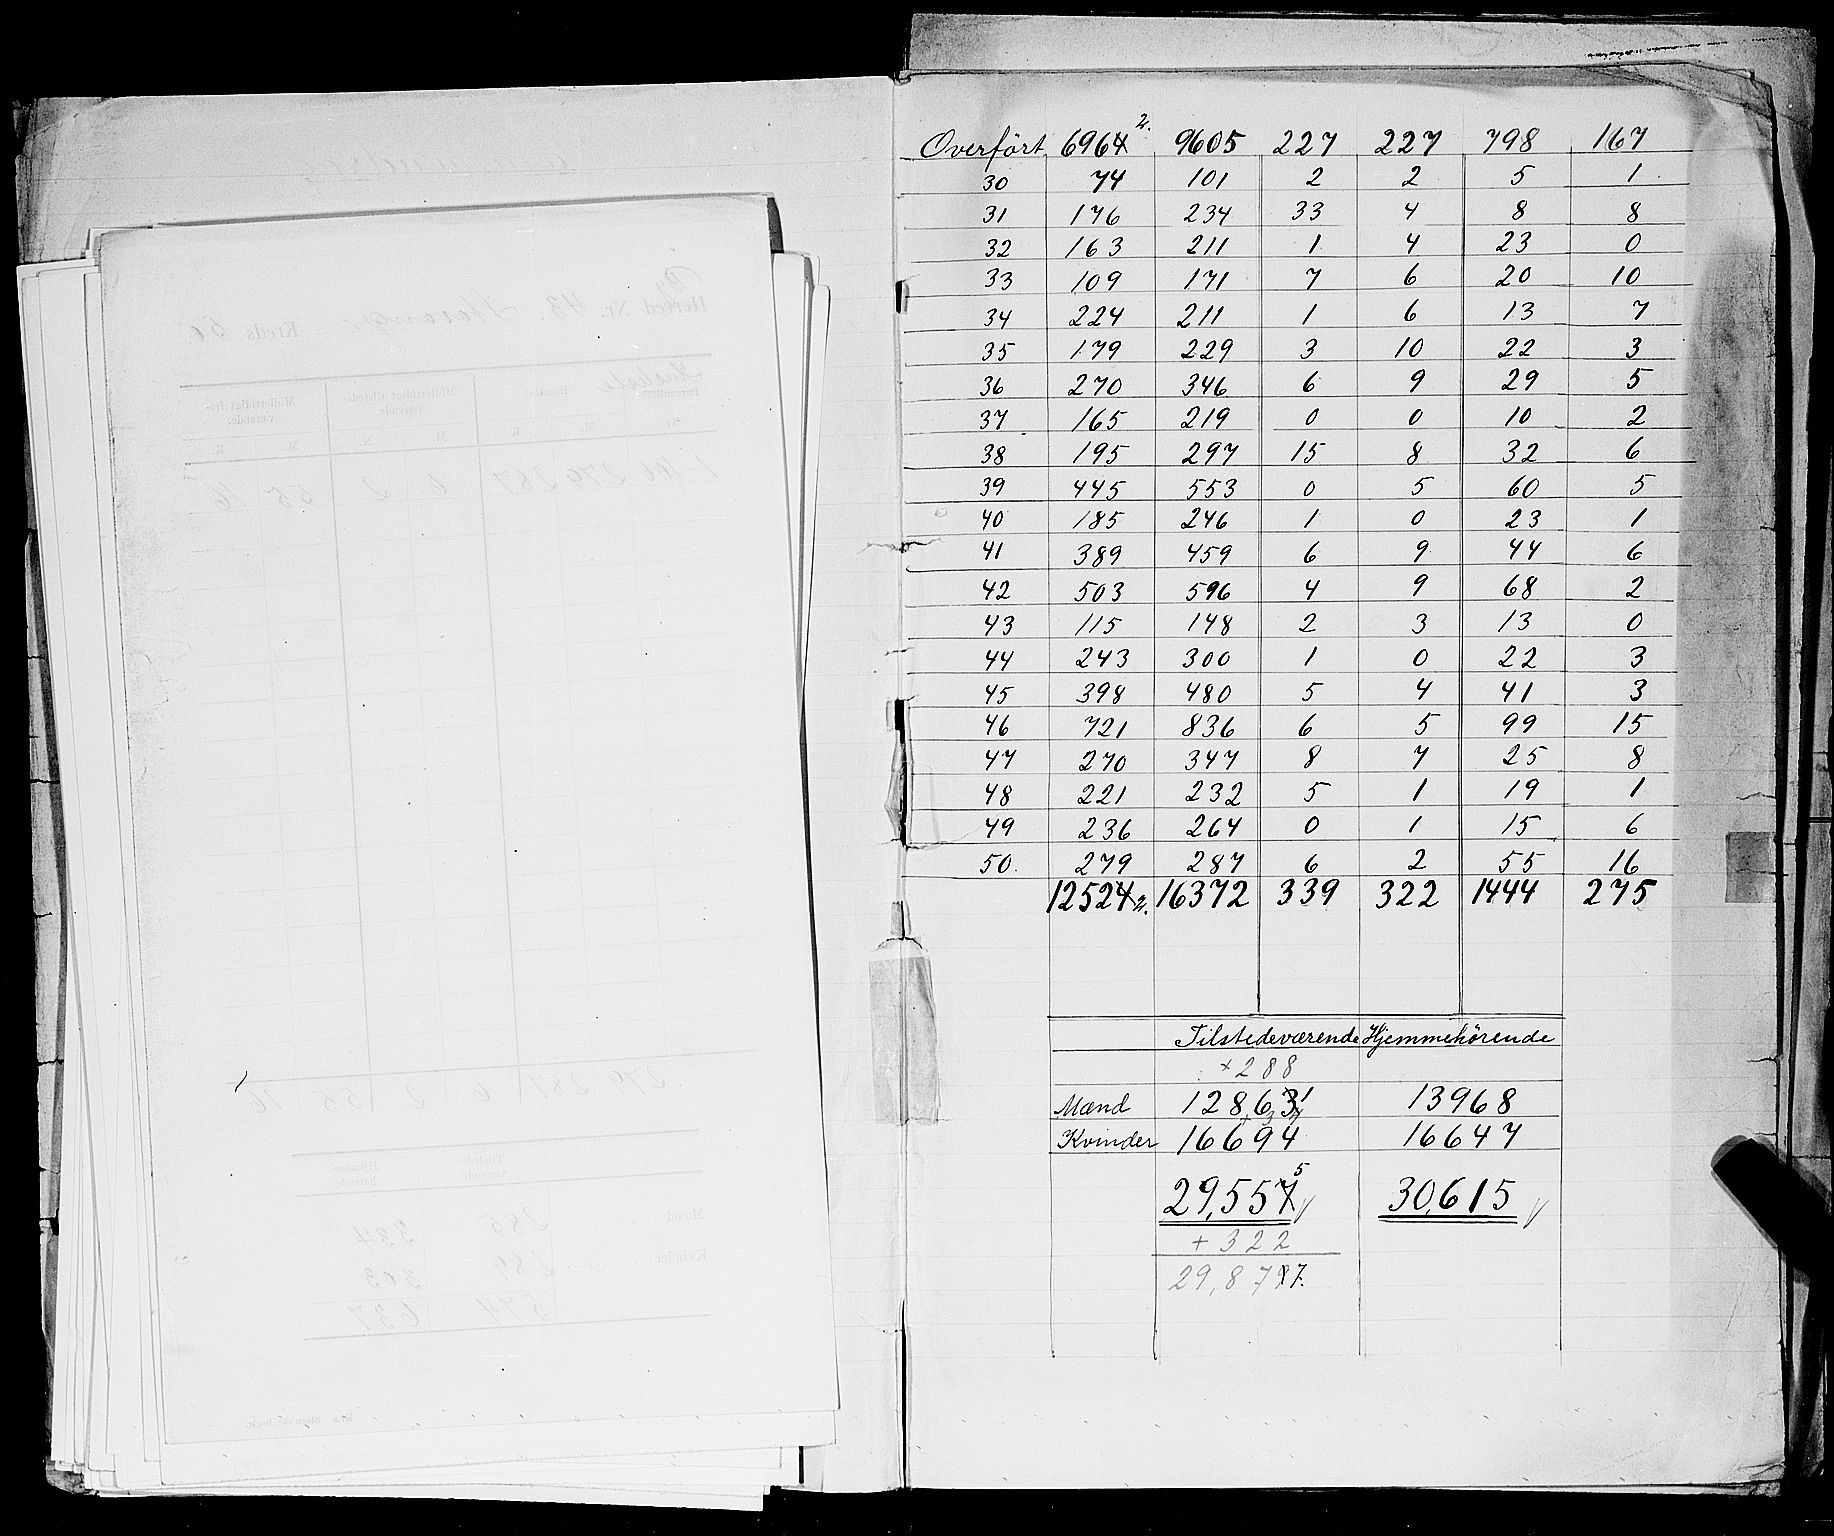 Overført 6964 2. 9605 227 227 798 167
30 74 101 2 2 5 1
31 176 234 33 4 8 8
32 163 211 1 4 23 0
33 109 171 7 6 20 10
34 224 211 1 6 13 7
35 179 229 3 10 22 3
36 270 346 6 9 29 5
37 165 219 0 0 10 2
38 195 297 15 8 32 6
39 445 553 0 5 60 5
40 185 246 1 0 23 1
41 389 459 6 9 44 6
42 503 596 4 9 68 2
43 115 148 2 3 13 0
44 243 300 1 0 22 3
45 398 480 5 4 41 3
46 721 836 6 5 99 15
47 270 347 8 7 25 8
48 221 232 5 1 19 1
49 236 264 0 1 15 6
50. 279 287 6 2 55 16
12524 2. 16372 339 322 1444 275
Tilstedeværende Hjemmehörende
+288
Mænd 12863 1 13968
Kvinder 16694 16647
29,557 5 30,615
+322
29,877.